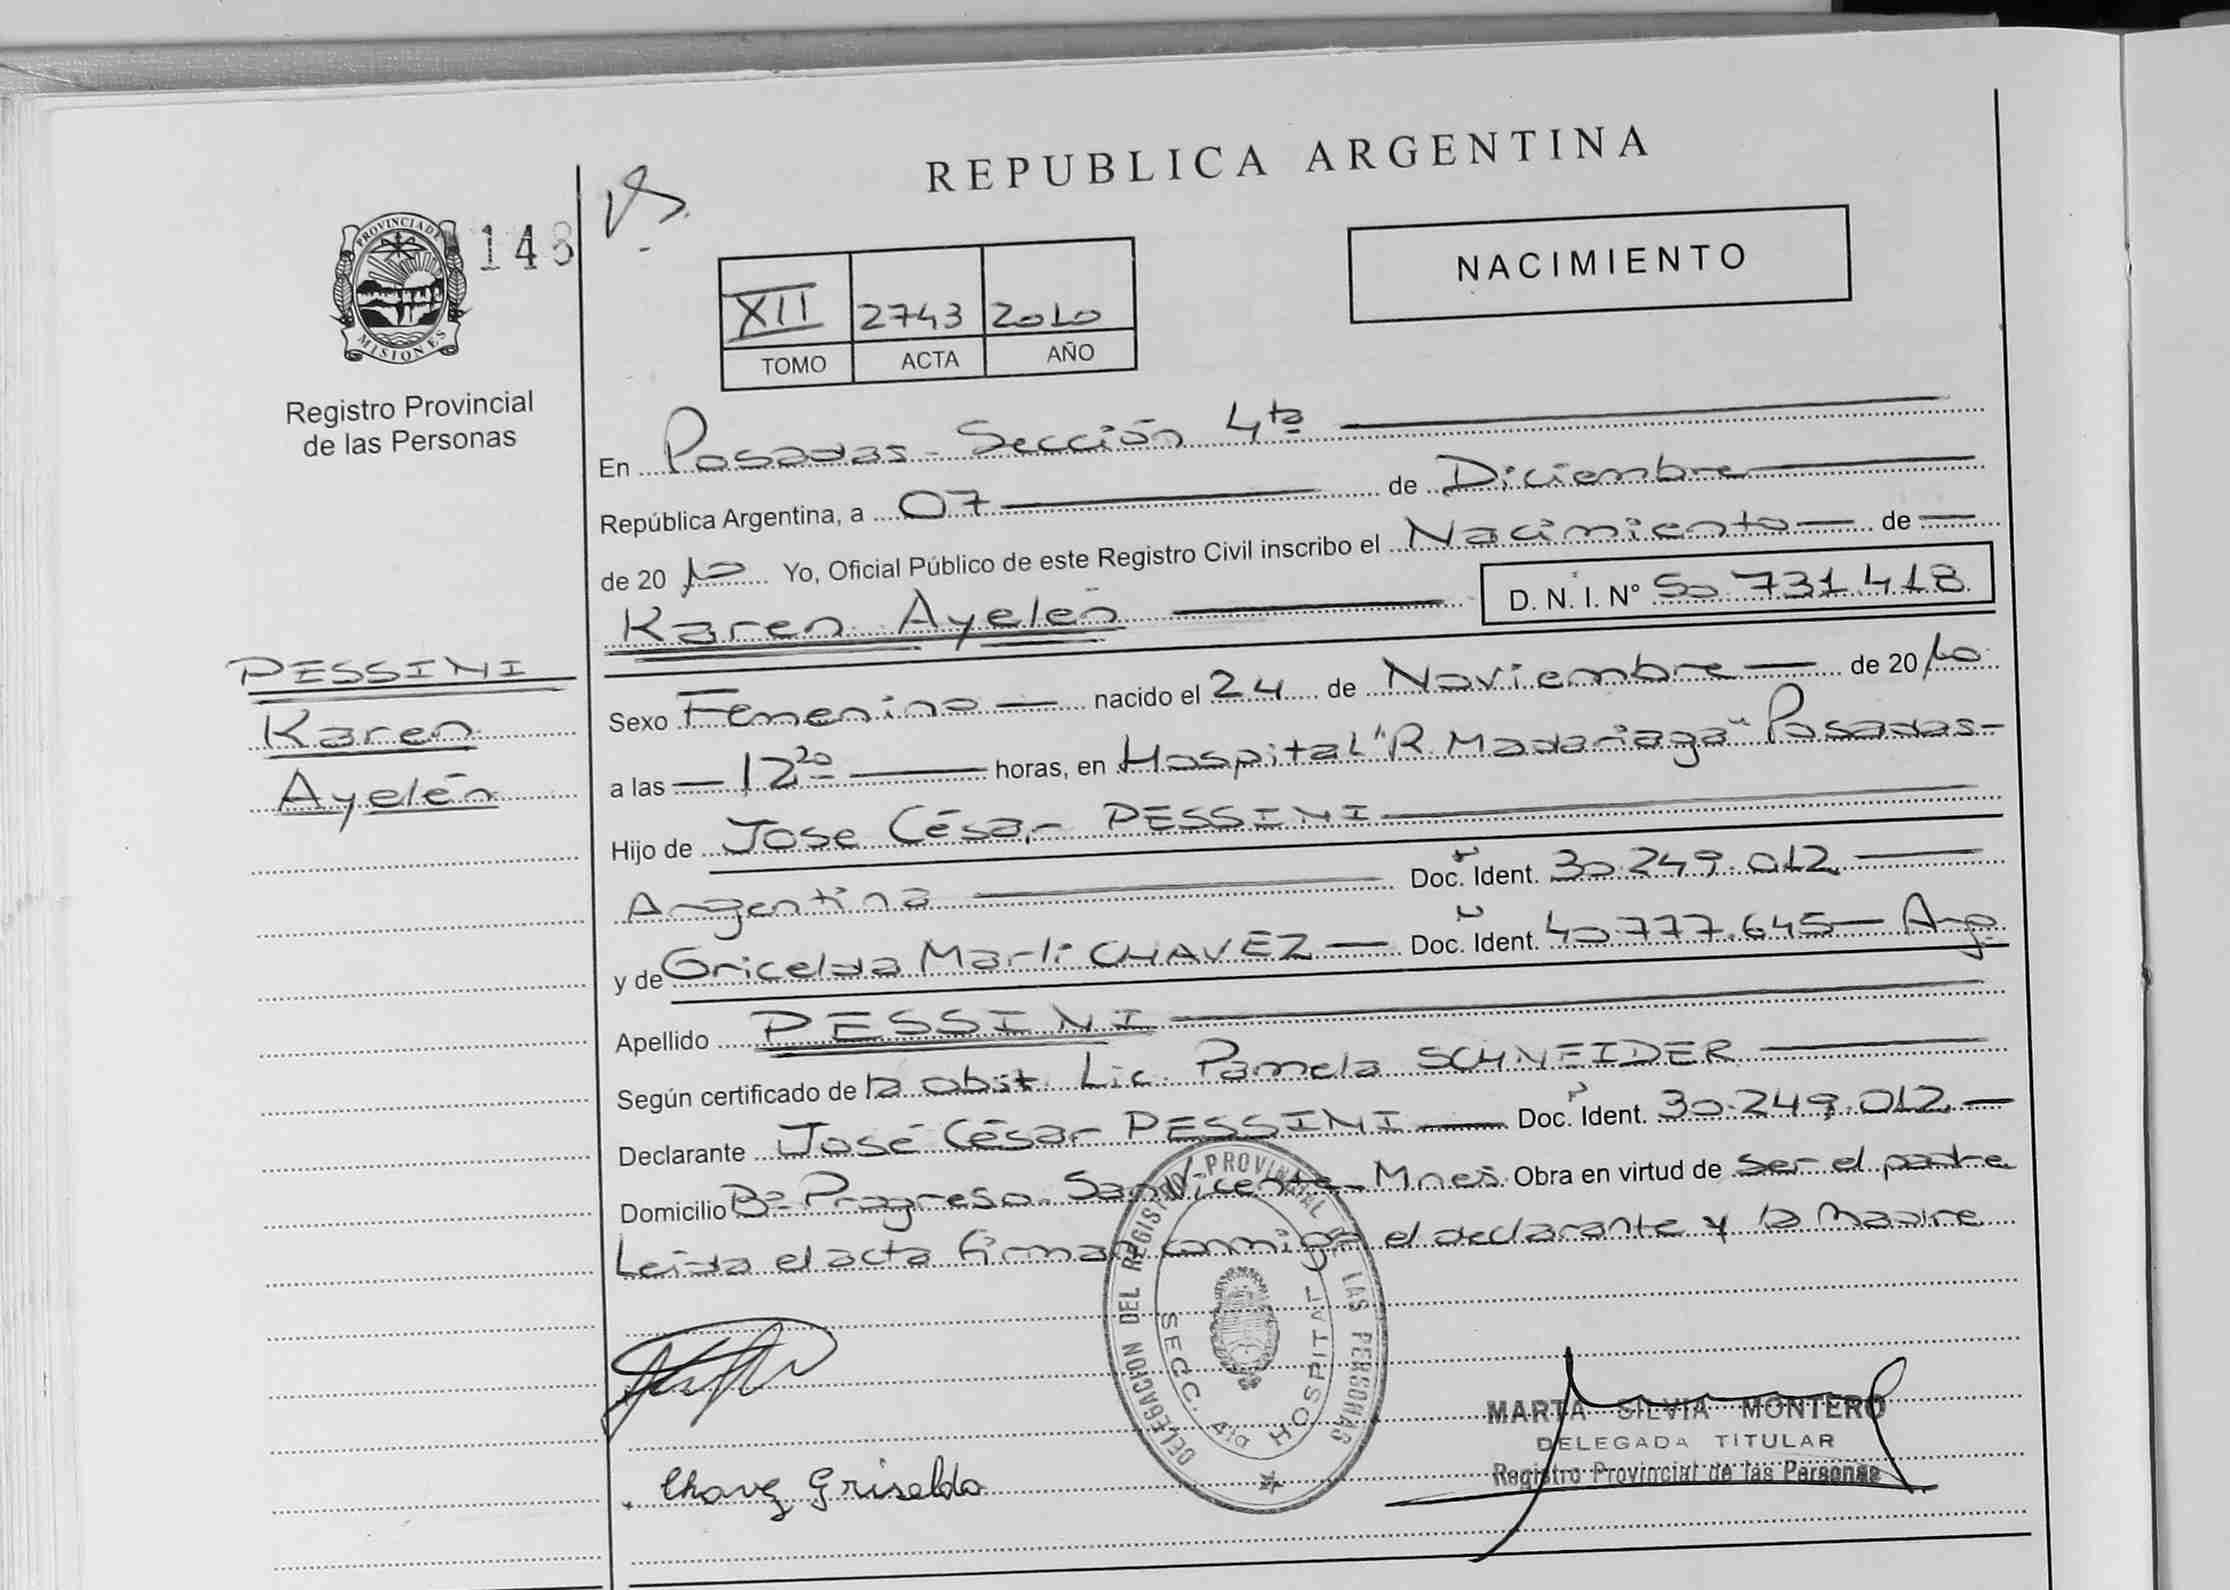 REPUBLICA ARGENTINA
PROVINCIA DE
MISIONES
148
NACIMIENTO
XII 2743 2010
TOMO ACTA AÑO
Registro Provincial
de las Personas
En Posadas - Sección 4ta
República Argentina, a 07 de Diciembre
de 2010 Yo, Oficial Público de este Registro Civil inscribo el Nacimiento de
Karen Ayelén D. N. I. N° 50 731.418
PESSINI
Karen
Ayelén
Sexo Femenino nacido el 24 de Noviembre de 2010
a las 12 20 horas, en Hospital "R. Madariaga" Posadas-
Hijo de Jose César PESSINI
Argentina Doc. Ident. 30.249.012
y de Gricelda Marli CHAVEZ Doc. Ident. 40.777.645 Arg.
Apellido PESSINI
Según certificado de la obst. Lic. Pamela SCHNEIDER
Declarante José César PESSINI Doc. Ident. 30.249.012
Domicilio Bº Progreso - San Vicente - Mnes. Obra en virtud de ser el padre
Leida el acta firman conmigo el declarante y la Madre
DELEGACION DEL REGISTRO PROVINCIAL DE LAS PERSONAS
SECC. 4ta HOSPITAL
Chavez Griselda
MARTA SILVIA MONTERO
DELEGADA TITULAR
Registro Provincial de las Personas